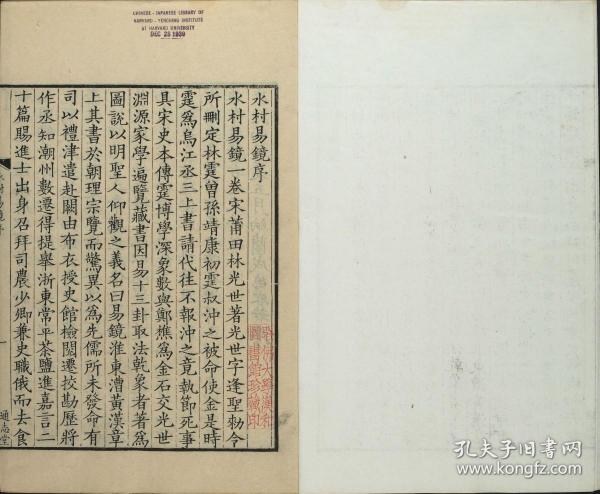 CHINESE - JAPANESE LIBRARY OF
HARVARD - YENCHING INSTITUTE
AT HARVARD UNIVERSITY
DEC 28 1939
水村易鏡序
水村易鏡一卷宋莆田林光世著光世字逢聖勅令
所刪定林霆曾孫靖康初霆叔沖之被命使金是時
霆爲烏江丞三上書請代往不報沖之竟執節死事
具宋史本傳霆博學深象數與鄭樵爲金石交光世
淵源家學遍覽藏書因易十三卦取法乾象者著爲
圖說以明聖人仰觀之義名曰易鏡淮東漕黃漢章
上其書於朝理宗覽而驚異以爲先儒所未發命有
司以禮津遣赴闕由布衣授史館檢閱遷挍勘歷將
作丞知潮州數遷得提舉浙東常平茶鹽進嘉言二
十篇賜進士出身召拜司農少卿兼史職俄而去食
水村易鏡序
一
通志堂
哈佛大學漢和
圖書館珍藏印
孔夫子旧书网
kongfz.com